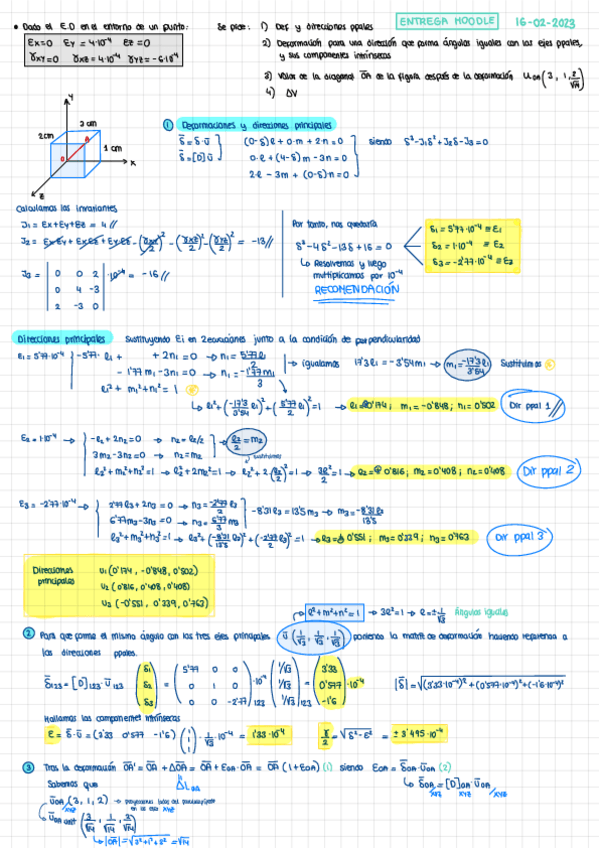 ENTREGA MOODLE 16-02-2023
• Dado el E.D en el entorno de un punto:
Ex=0 Ey = 4·10⁻⁴ Ez=0
γxy=0 γxz=4·10⁻⁴ γyz=-6·10⁻⁴
Se pide: 1) Def y direcciones ppales
2) Deformación para una dirección que forma ángulos iguales con los ejes ppales, y sus componentes intrínsecas
3) Valor de la diagonal OA de la figura después de la deformación
4) ΔV
Y
3 cm
2cm
A
1 cm
0
X
Z
① Deformaciones y direcciones principales
δ̄ = δ·ū
δ̄ = [D]ū
(0-δ)l + 0·m + 2·n = 0
0·l + (4-δ)m - 3n = 0
2·l - 3m + (0-δ)n = 0
siendo δ³-J₁δ²+J₂δ-J₃=0
Calculamos los invariantes
J₁ = Ex+Ey+Ez = 4 //
J₂ = ExEy + ExEz + EyEz - (γxy/2)² - (γxz/2)² - (γyz/2)² = -13 //
J₃ = | 0 0 2 | 0 4 -3 | 2 -3 0 | = -16 //
Por tanto, nos quedaría
δ³-4δ²-13δ+16 = 0
↳ Resolvemos y luego multiplicamos por 10⁻⁴
RECOMENDACIÓN
δ₁ = 5'77·10⁻⁴ ≡ E₁
δ₂ = 1·10⁻⁴ ≡ E₂
δ₃ = -2'77·10⁻⁴ ≡ E₃
Direcciones principales Sustituyendo Ei en 2 ecuaciones junto a la condición de perpendicularidad
E₁ = 5'77·10⁻⁴
-5'77·l₁ + 2n₁ = 0 → n₁ = 5'77l₁/2
-1'77m₁ - 3n₁ = 0 → n₁ = -1'77m₁/3
l₁² + m₁² + n₁² = 1
→ igualamos 17'3l₁ = -3'54m₁ → m₁ = -17'3l₁/3'54 Sustituimos
↳ l₁² + (-17'3/3'54 l₁)² + (5'77/2 l₁)² = 1 → l₁=0'174; m₁ = -0'848; n₁ = 0'502 Dir ppal 1
E₂ = 1·10⁻⁴ →
-l₂ + 2n₂ = 0 → n₂ = l₂/2
3m₂ - 3n₂ = 0 → n₂ = m₂
l₂/2 = m₂
sustituimos
l₂² + m₂² + n₂² = 1 → l₂² + 2m₂² = 1 → l₂² + 2(l₂/2)² = 1 → 3l₂²/2 = 1 → l₂ = 0'816; m₂ = 0'408; n₂ = 0'408 Dir ppal 2
E₃ = -2'77·10⁻⁴ →
2'77l₃ + 2n₃ = 0 → n₃ = -2'77l₃/2
6'77m₃ - 3n₃ = 0 → n₃ = 6'77m₃/3
-8'31l₃ = 13'5m₃ → m₃ = -8'31l₃/13'5
l₃² + m₃² + n₃² = 1 → l₃² + (-8'31/13'5 l₃)² + (-2'77/2 l₃)² = 1 → l₃ = 0'551; m₃ = 0'339; n₃ = 0'763 Dir ppal 3
Direcciones principales
u₁ (0'174, -0'848, 0'502)
u₂ (0'816, 0'408, 0'408)
u₃ (-0'551, 0'339, 0'763)
→ l²+m²+n²=1 → 3l²=1 → l=±1/√3 Ángulos iguales
② Para que forme el mismo ángulo con los tres ejes principales ū(1/√3, 1/√3, 1/√3) poniendo la matriz de deformación haciendo referencia a las direcciones ppales.
δ̄₁₂₃ = [D]₁₂₃·ū₁₂₃ (δ₁ δ₂ δ₃) = (5'77 0 0 | 0 1 0 | 0 0 -2'77)₁₂₃ ·10⁻⁴ (1/√3 1/√3 1/√3)₁₂₃ = (3'33 0'577 -1'6)·10⁻⁴
|δ̄| = √((3'33·10⁻⁴)² + (0'577·10⁻⁴)² + (-1'6·10⁻⁴)²
Hallamos las componentes intrínsecas
E = δ̄·ū = (3'33 0'577 -1'6)(1 1 1)·1/√3·10⁻⁴ = 1'33·10⁻⁴
γ/2 = √(δ²-E²) = ±3'495·10⁻⁴
③ Tras la deformación OA' = OA + ΔOA = OA + EOA·OA = OA (1+EOA) (1) siendo EOA = δ̄OA·ūOA (2)
Sabemos que
↳ δ̄OA = [D]OA·ūOA
ūOA (3, 1, 2)
ūOA unit (3/√14, 1/√14, 2/√14)
↳ |OA| = √(3²+1²+2²) = √14